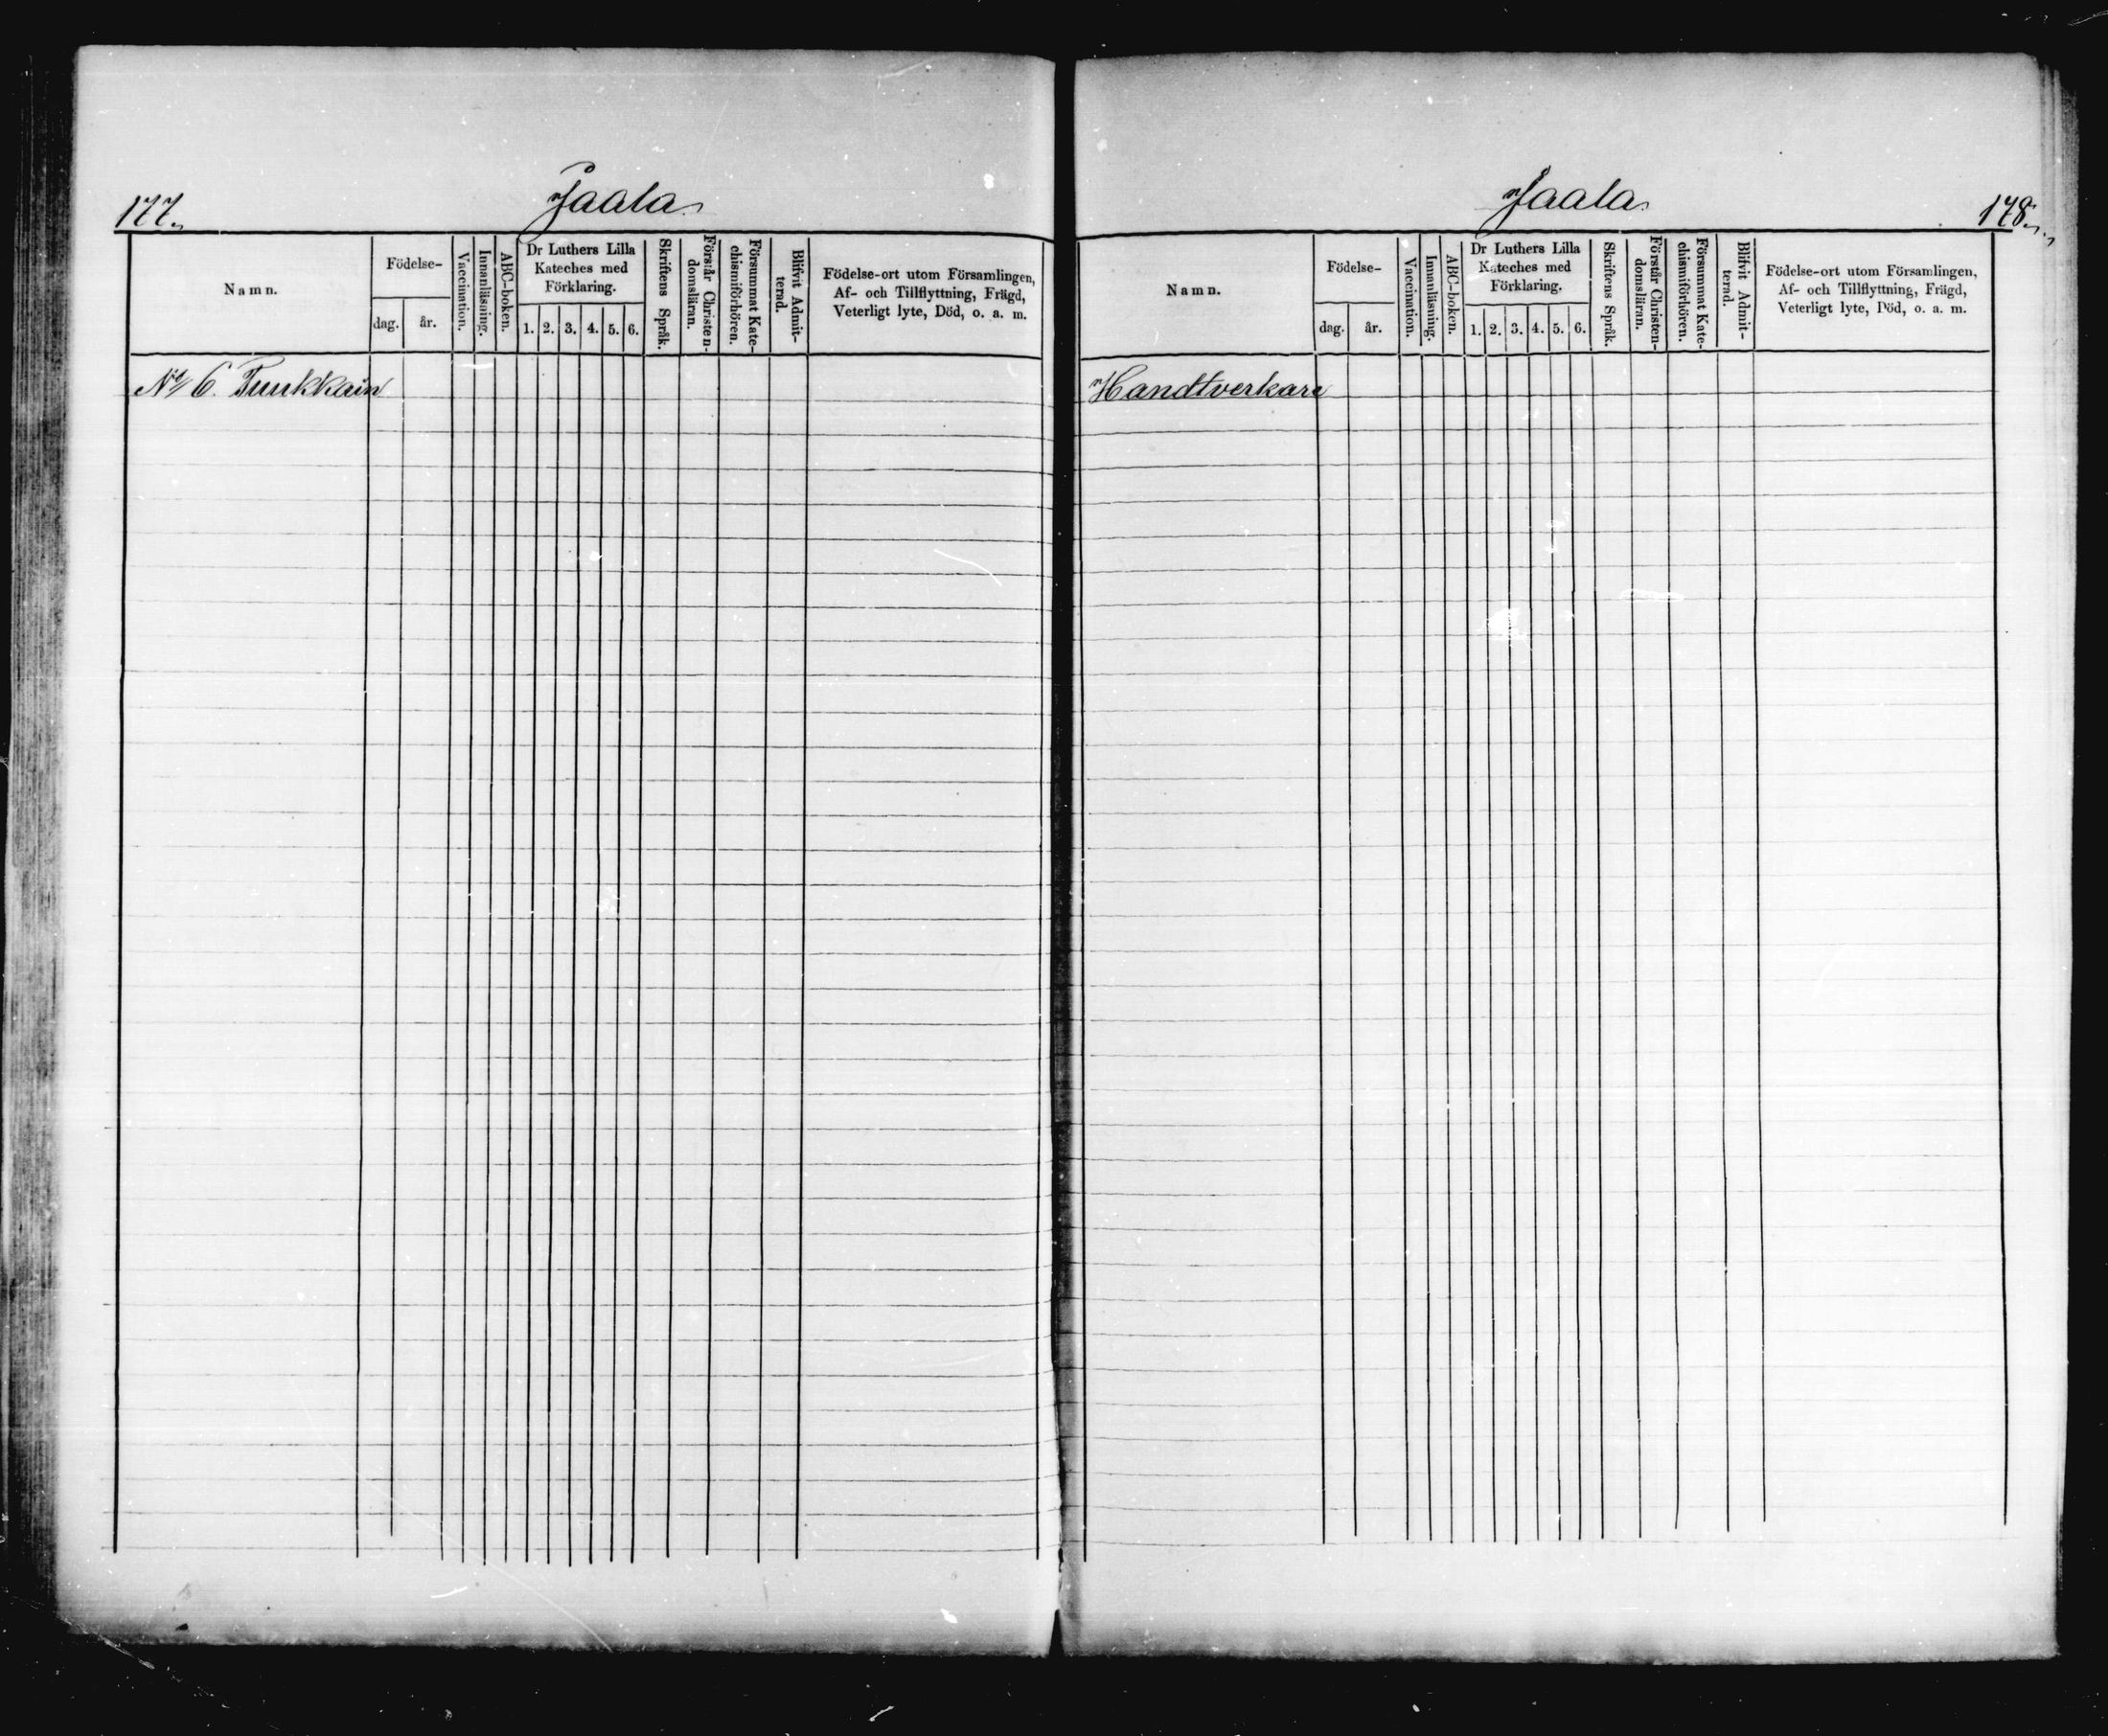 177.
Jaala
Namn.
Födelse-
dag.
år.
Vaccination.
Innanläsning.
ABC-boken.
Dr Luthers Lilla
Kateches med
Förklaring.
1. 2. 3. 4. 5. 6.
Skriftens Språk.
Förstår Christen-
domsläran.
Försummat Kate-
chismiförhören.
Blifvit Admit-
terad.
Födelse-ort utom Församlingen,
Af- och Tillflyttning, Frägd,
Veterligt lyte, Död, o. a. m.
No 6.
Jaala
178.
Namn.
Födelse-
dag.
år.
Vaccination.
Innanläsning.
ABC-boken.
Dr Luthers Lilla
Kateches med
Förklaring.
1. 2. 3. 4. 5. 6.
Skriftens Språk.
Förstår Christen-
domsläran.
Försummat Kate-
chismiförhören.
Blifvit Admit-
terad.
Födelse-ort utom Församlingen,
Af- och Tillflyttning, Frägd,
Veterligt lyte, Död, o. a. m.
Handtverkare